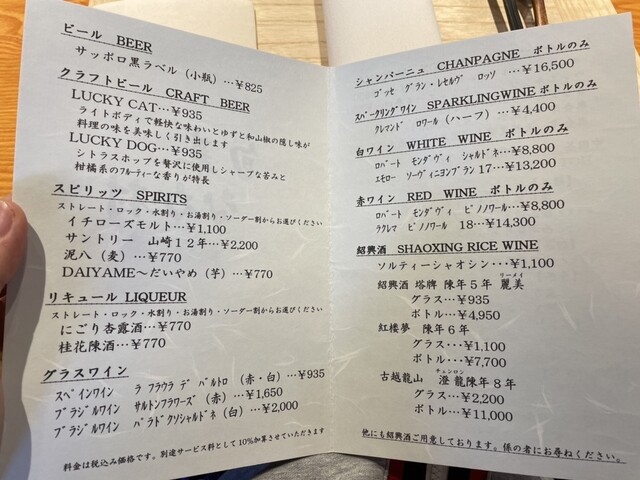 ビール BEER
サッポロ黒ラベル（小瓶）…￥825
クラフトビール CRAFT BEER
LUCKY CAT…￥935
ライトボディで軽快な味わいとゆずと和山椒の隠し味が
料理の味を美味しく引き出します
LUCKY DOG…￥935
シトラスホップを贅沢に使用しシャープな苦みと
柑橘系のフルーティーな香りが特長
スピリッツ SPIRITS
ストレート・ロック・水割り・お湯割り・ソーダー割からお選びください
イチローズモルト…￥1,100
サントリー 山崎１２年…￥2,200
泥八（麦）…￥770
DAIYAME～だいやめ（芋）…￥770
リキュール LIQUEUR
ストレート・ロック・水割り・お湯割り・ソーダー割からお選びください
にごり杏露酒…￥770
桂花陳酒…￥770
グラスワイン
スペインワイン ラ フラウラ デ バルトロ（赤・白）…￥935
ブラジルワイン サルトンフラワーズ（赤）…￥1,650
ブラジルワイン パラドクソシャルドネ（白）…￥2,000
料金は税込み価格です。別途サービス料として10%加算させていただきます
シャンパーニュ CHANPAGNE ボトルのみ
ゴッセ グラン・レゼルヴ ロッソ …￥16,500
スパークリングワイン SPARKLINGWINE ボトルのみ
クレマンド ロワール（ハーフ）…￥4,400
白ワイン WHITE WINE ボトルのみ
ロバート モンダヴィ シャルドネ…￥8,800
エモロー ソーヴィニヨンブラン 17…￥13,200
赤ワイン RED WINE ボトルのみ
ロバート モンダヴィ ピノノワール…￥8,800
ラクレマ ピノノワール 18…￥14,300
紹興酒 SHAOXING RICE WINE
ソルティーシャオシン…￥1,100
紹興酒 塔牌 陳年５年 麗美 リーメイ
グラス…￥935
ボトル…￥4,950
紅楼夢 陳年６年
グラス…￥1,100
ボトル…￥7,700
古越龍山 澄龍陳年８年 チェンロン
グラス…￥2,200
ボトル…￥11,000
他にも紹興酒ご用意しております。係の者にお尋ねください。